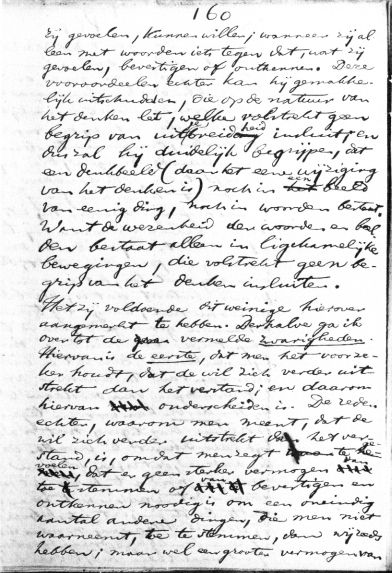 160
zij gevoelen, kunnen willen; wanneer zij al
leen met woorden iets tegen dat, wat zij
gevoelen, bevestigen of ontkennen. Deze
vooroordeelen echter kan hij gemakke-
lijk uitschudden, die op de natuur van
het denken let, welke volstrekt geen
begrip van uitgebreidheid insluit, en
dus zal hij duidelijk begrijpen, dat
een denkbeeld (daar het een wijziging
van het denken is) noch in een beeld
van eenig ding, noch in woorden bestaat.
Want de wezenheid der woorden en beel
den bestaat alleen in ligchamelijke
bewegingen, die volstrekt geen be-
grip van het denken insluiten.
Het zij voldoende dit weinige hierover
aangemerkt te hebben. Derhalve ga ik
over tot de vermelde zwarigheden.
Hiervan is de eerste, dat men het voorze-
ker houdt, dat de wil zich verder uit
strekt dan het verstand; en daarom
hiervan onderscheiden is. De reden
echter, waarom men meent, dat de
wil zich verder uitstrekt dan het ver-
stand, is, omdat men zegt te ge-
voelen, dat er geen sterker vermogen van
toe te stemmen of van bevestigen en
ontkennen noodig is om een oneindig
aantal andere dingen, die men niet
waarneemt, toe te stemmen, dan wij reeds
hebben; maar wel een grooter vermogen van